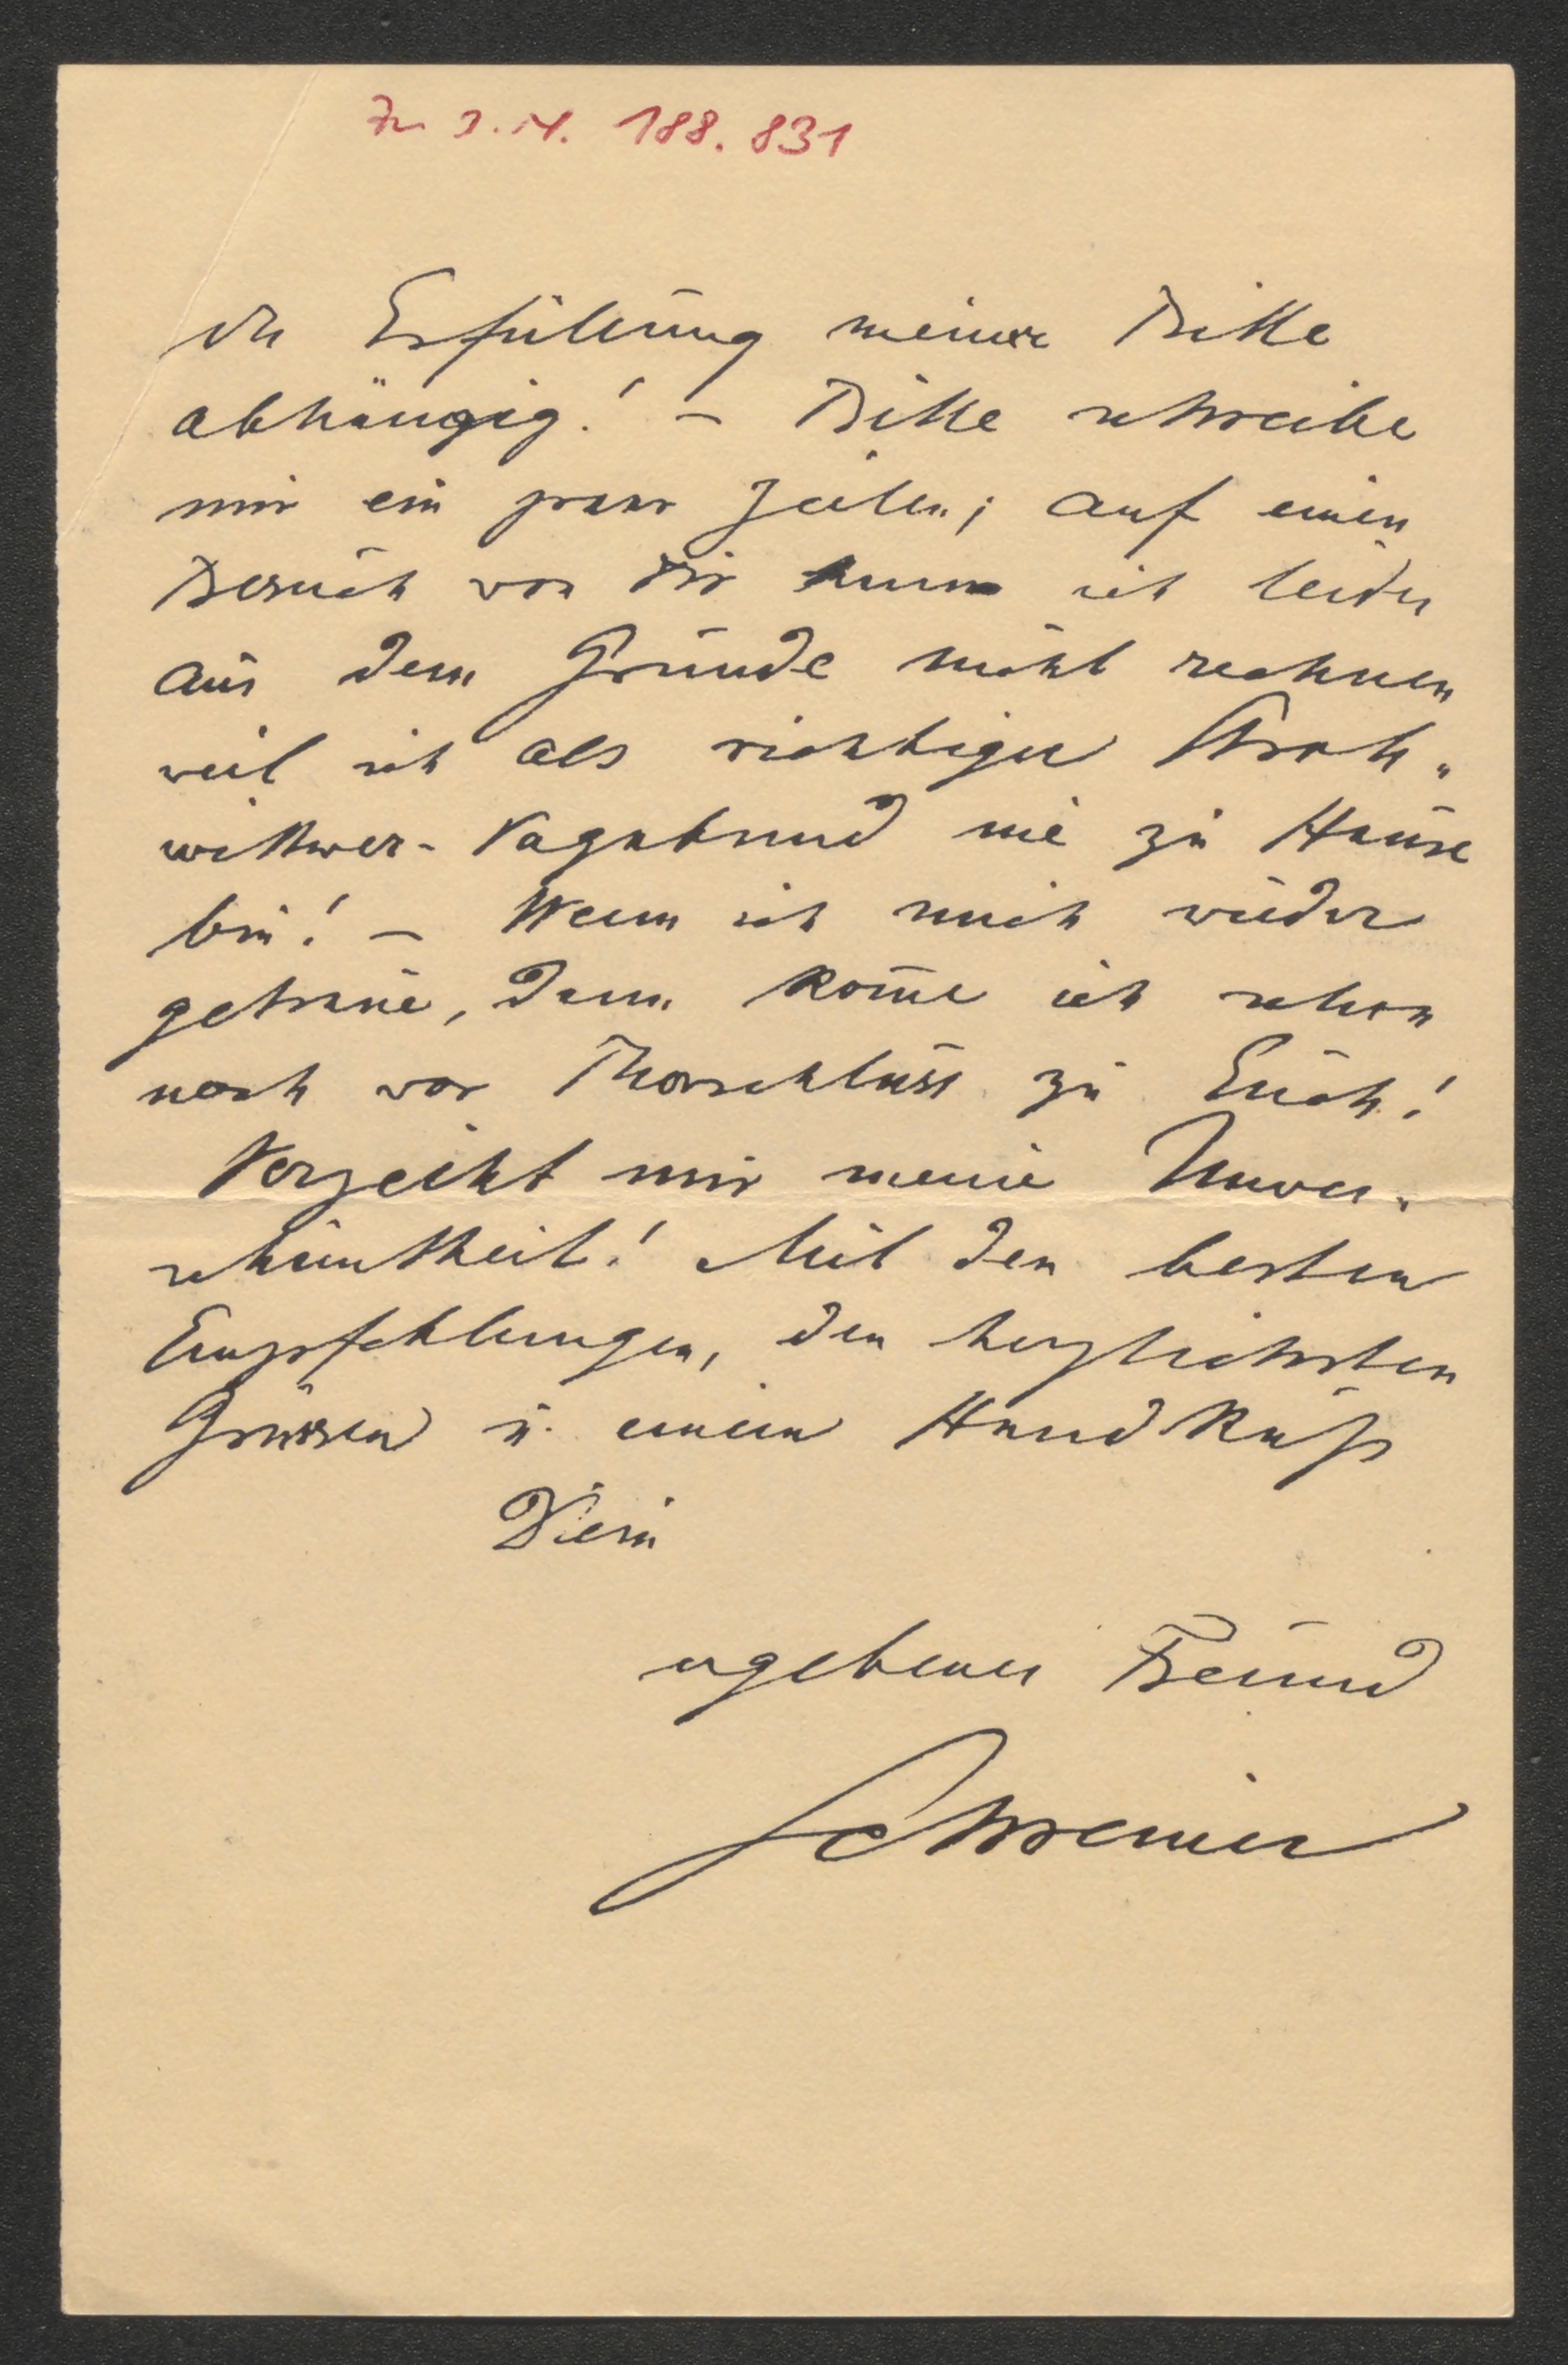 Zu I.N. 188.831
der Erfüllung meiner Bitte
abhängig! – Bitte schreibe
mir ein paar Zeilen; auf einen
Besuch von Dir kann ich leider
aus dem Grunde nicht rechnen
weil ich als richtiger Stroh-
wittwer-Vagabund nie zu Hause
bin! – Wenn ich mich wieder
getraue, dann kom̅e ich schon
noch vor Thorschluss zu Euch!
Verzeiht mir meine Unver-
schämtheit! Mit den besten
Empfehlungen, den herzlichsten
Grüssen u. einem Handkuß
Dein
ergebener Freund